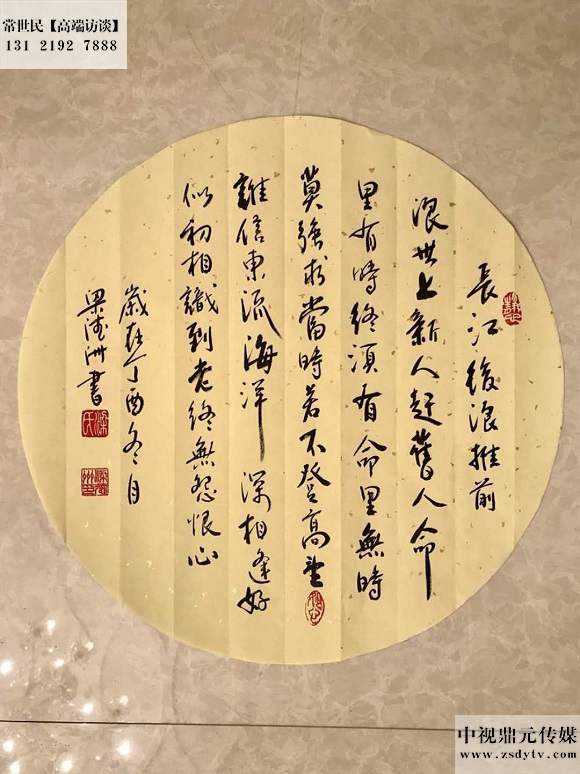 常世民【高端访谈】
131 2192 7888
長江後浪推前
浪世上新人赶舊人命
里有時終須有命里無時
莫強求當時若不登高望
誰信東流海洋深相逢好
似初相識到老終無怨恨心
歲在丁酉冬月
梁洲書
中视鼎元传媒
www.zsdytv.com